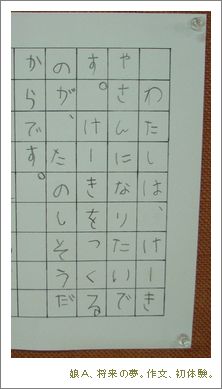 わたしは、けーき
やさんになりたいで
す。けーきをつくる
のが、たのしそうだ
からです。
娘A、将来の夢。作文、初体験。